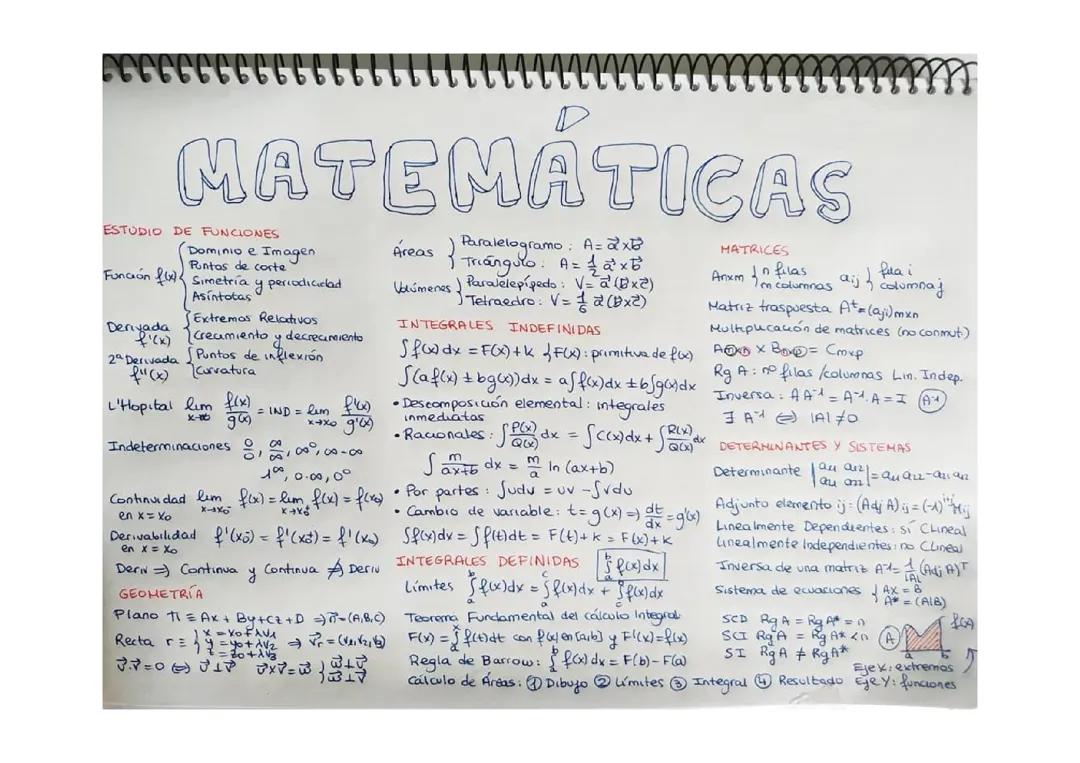 MATEMÁTICAS
ESTUDIO DE FUNCIONES
Función f(x) { Dominio e Imagen
Puntos de corte
Simetría y periodicidad
Asíntotas
Derivada f'(x) { Extremos Relativos
Crecimiento y decrecimiento
2ª Derivada f''(x) { Puntos de inflexión
Curvatura
L'Hopital lim f(x)/g(x) = IND = lim x→x0 f'(x)/g'(x)
Indeterminaciones 0/0, ∞/∞, ∞⁰, ∞-∞
1^∞, 0·∞, 0⁰
Continuidad en x = x0 lim x→x0⁻ f(x) = lim x→x0⁺ f(x) = f(x0)
Derivabilidad en x = x0 f'(x0⁻) = f'(x0⁺) = f'(x0)
Deriv ⇒ Continua y Continua ⇏ Deriv
GEOMETRÍA
Plano π ≡ Ax + By + Cz + D ⇒ n⃗ = (A,B,C)
Recta r ≡ { x = x0 + λv1
y = y0 + λv2 ⇒ v⃗r = (v1, v2, v3)
z = z0 + λv3
Áreas } Paralelogramo: A = a⃗ x b⃗
Triángulo: A = 1/2 a⃗ x b⃗
Volúmenes } Paralelepípedo: V = a⃗ (b⃗ x c⃗)
Tetraedro: V = 1/6 a⃗ (b⃗ x c⃗)
INTEGRALES INDEFINIDAS
∫f(x)dx = F(x)+k { F(x): primitiva de f(x)
∫(af(x) ± bg(x))dx = a∫f(x)dx ± b∫g(x)dx
• Descomposición elemental: integrales
inmediatas
• Racionales: ∫P(x)/Q(x) dx = ∫C(x)dx + ∫R(x)/Q(x) dx
∫ m/(ax+b) dx = m/a ln (ax+b)
• Por partes: ∫udv = uv - ∫vdu
• Cambio de variable: t = g(x) ⇒ dt/dx = g'(x)
∫f(x)dx = ∫f(t)dt = F(t)+k = F(x)+k
INTEGRALES DEFINIDAS ∫ₐᵇ f(x)dx
Límites ∫ₐᵇ f(x)dx = ∫ₐᶜ f(x)dx + ∫ f(x)dx
Teorema Fundamental del cálculo Integral
F(x) = ∫ₐˣ f(t)dt con f(x) en [a,b] y F'(x) = f(x)
Regla de Barrow: ∫ₐᵇ f(x)dx = F(b) - F(a)
Cálculo de Áreas: ① Dibujo ② Límites ③ Integral ④ Resultado
MATRICES
Anxm { n filas
m columnas aij } fila i
columna j
Matriz traspuesta Aᵗ = (aji)mxn
Multiplicación de matrices (no conmut.)
x = Cmxp
Rg A: nº filas /columnas Lin. Indep.
Inversa: A A⁻¹ = A⁻¹. A = I (A⁻¹)
∃ A⁻¹ ⇔ |A| ≠ 0
DETERMINANTES Y SISTEMAS
Determinante
Adjunto elemento ij: (Adj A)ij = (-1)^(i+j) Mij
Linealmente Dependientes: sí CLineal
Linealmente Independientes: no CLineal
Inversa de una matriz A⁻¹ = 1/|A| (Adj A)ᵀ
Sistema de ecuaciones { AX = B
A* = (A|B)
SCD Rg A = Rg A* = n
SCI Rg A = Rg A* < n
SI Rg A ≠ Rg A*
A
f(x)
a b
Eje X: extremos
Eje Y: funciones